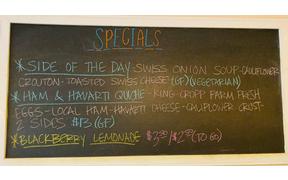 SPECIALS
* SIDE OF THE DAY SWISS ONION SOUP-CAULIFLOWER
CROUTON-TOASTED SWISS CHEESE (GF) (VEGETARIAN)
* HAM & HAVARTI QUICHE-KING CROPP FARM FRESH
EGGS-LOCAL HAM-HAVARTI CHEESE-CAULIFLOWER CRUST-
2 SIDES $13 (GF)
* BLACKBERRY LEMONADE $3.50/$2.99 (TO GO)